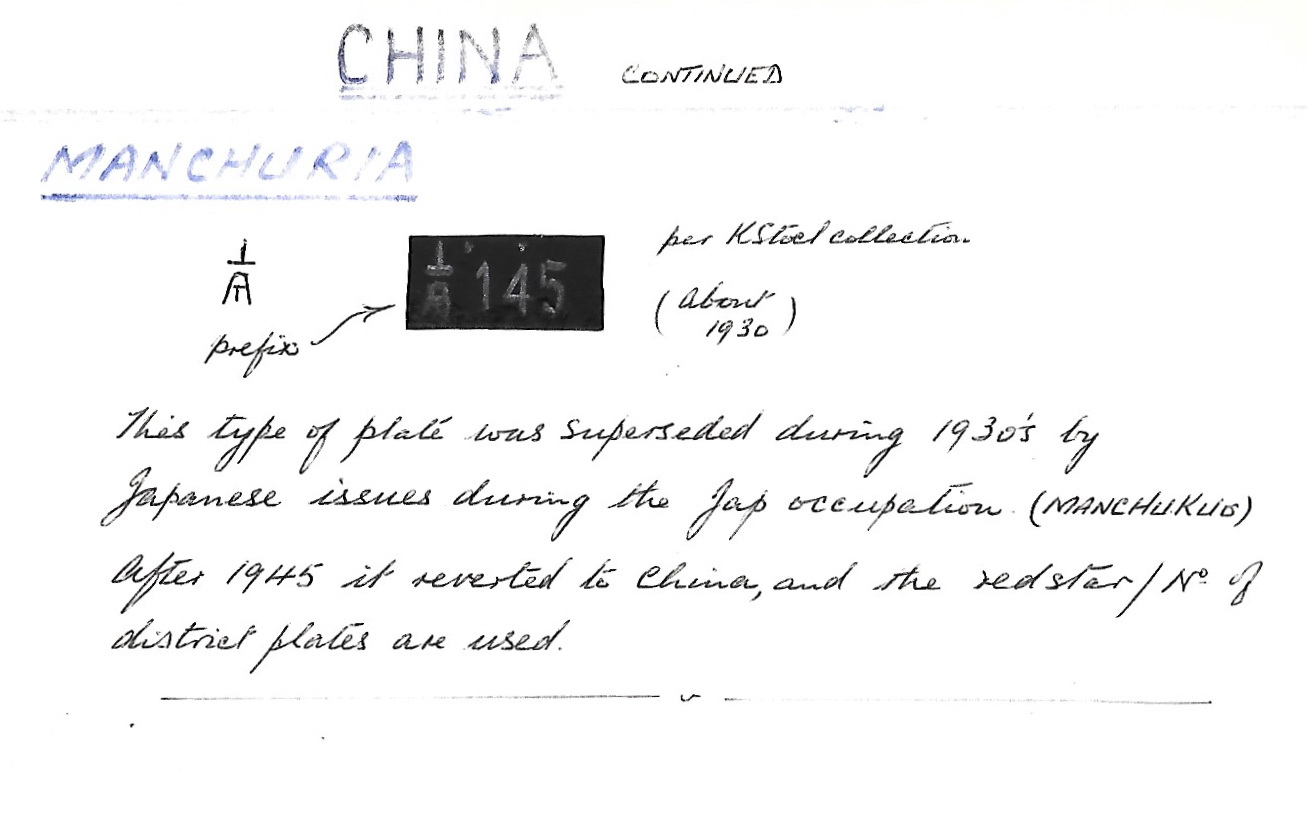 CHINA CONTINUED
MANCHURIA
per KStoel collection
145
(About
1930)
prefix
This type of plate was superseded during 1930's by
Japanese issues during the Jap occupation (MANCHUKUO)
After 1945 it reverted to China, and the redstar/No of
district plates are used.